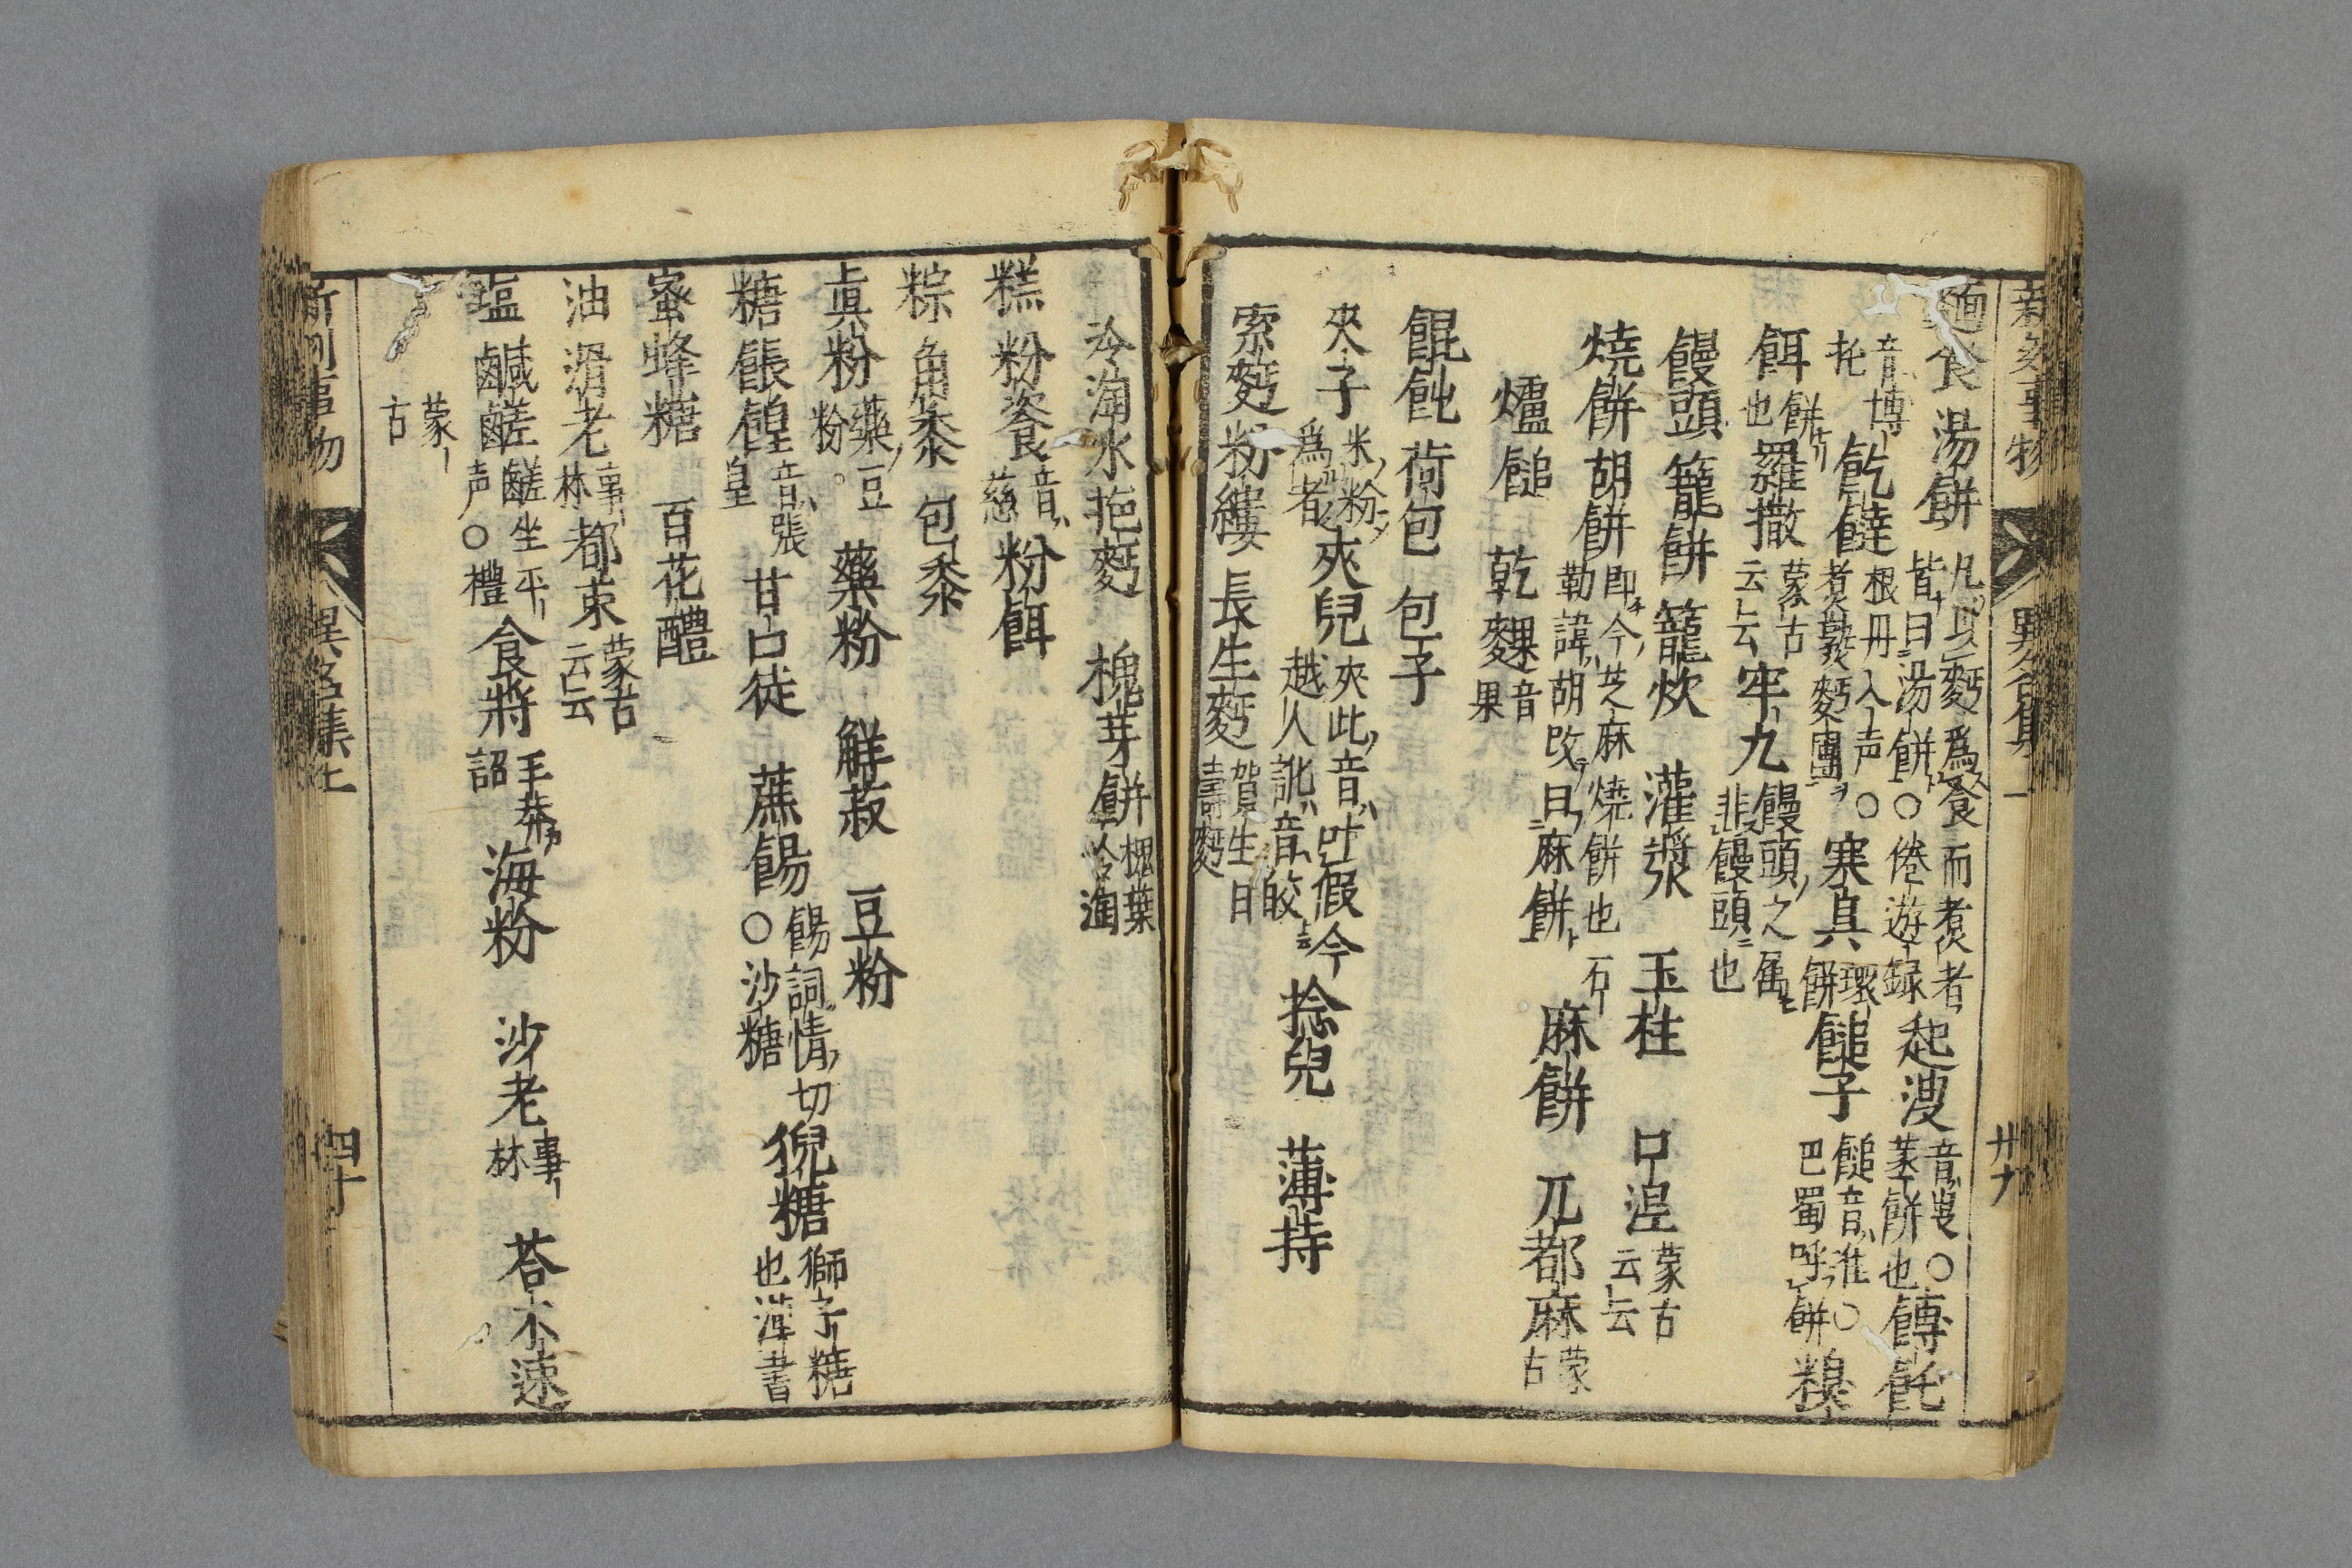 新刻事物 異名集上 廿九
麵食 湯餅 凡以麪爲餐而煮者皆曰湯餅○倦遊録 起溲 音叟○蒸餅也 餺飥
音博托 飥饉 根冊入声○煮熟麪團 寒具 環餅 䭔子 䭔音堆○巴蜀呼餅 糗
餌 餅也 羅撒 蒙古云云 牢九 饅頭之属非饅頭也
饅頭 籠餅 籠炊 灌漿 玉柱 口涅 蒙古云云
燒餅 胡餅 即今芝麻燒餅也石勒諱胡改曰麻餅 麻餅 兀都麻 蒙古
爐䭔 乾粿 音果
餛飩 荷包 包子
夾子 米粉爲者 夾兒 夾此音吐假今越人訛音皎 捻兒 薄持
索麪 粉縷 長生麪 賀生日壽麪
冷淘 水拖麪 槐芽餅 槐葉冷淘
糕 粉餈 音慈 粉餌
粽 角黍 包黍
眞粉 藥豆粉 藥粉 鮮菽 豆粉
糖 餦餭 音張皇 甘口徒 蔗餳 餳詞情切○沙糖 猊糖 獅子糖也漢書
蜜 蜂糖 百花醴
油 滑老 事林 都束 蒙古云云
塩 鹹鹺 鹺坐平声○禮 食將 王莽詔 海粉 沙老 事林 荅不速
蒙古
新刻事物 異名集上 四十